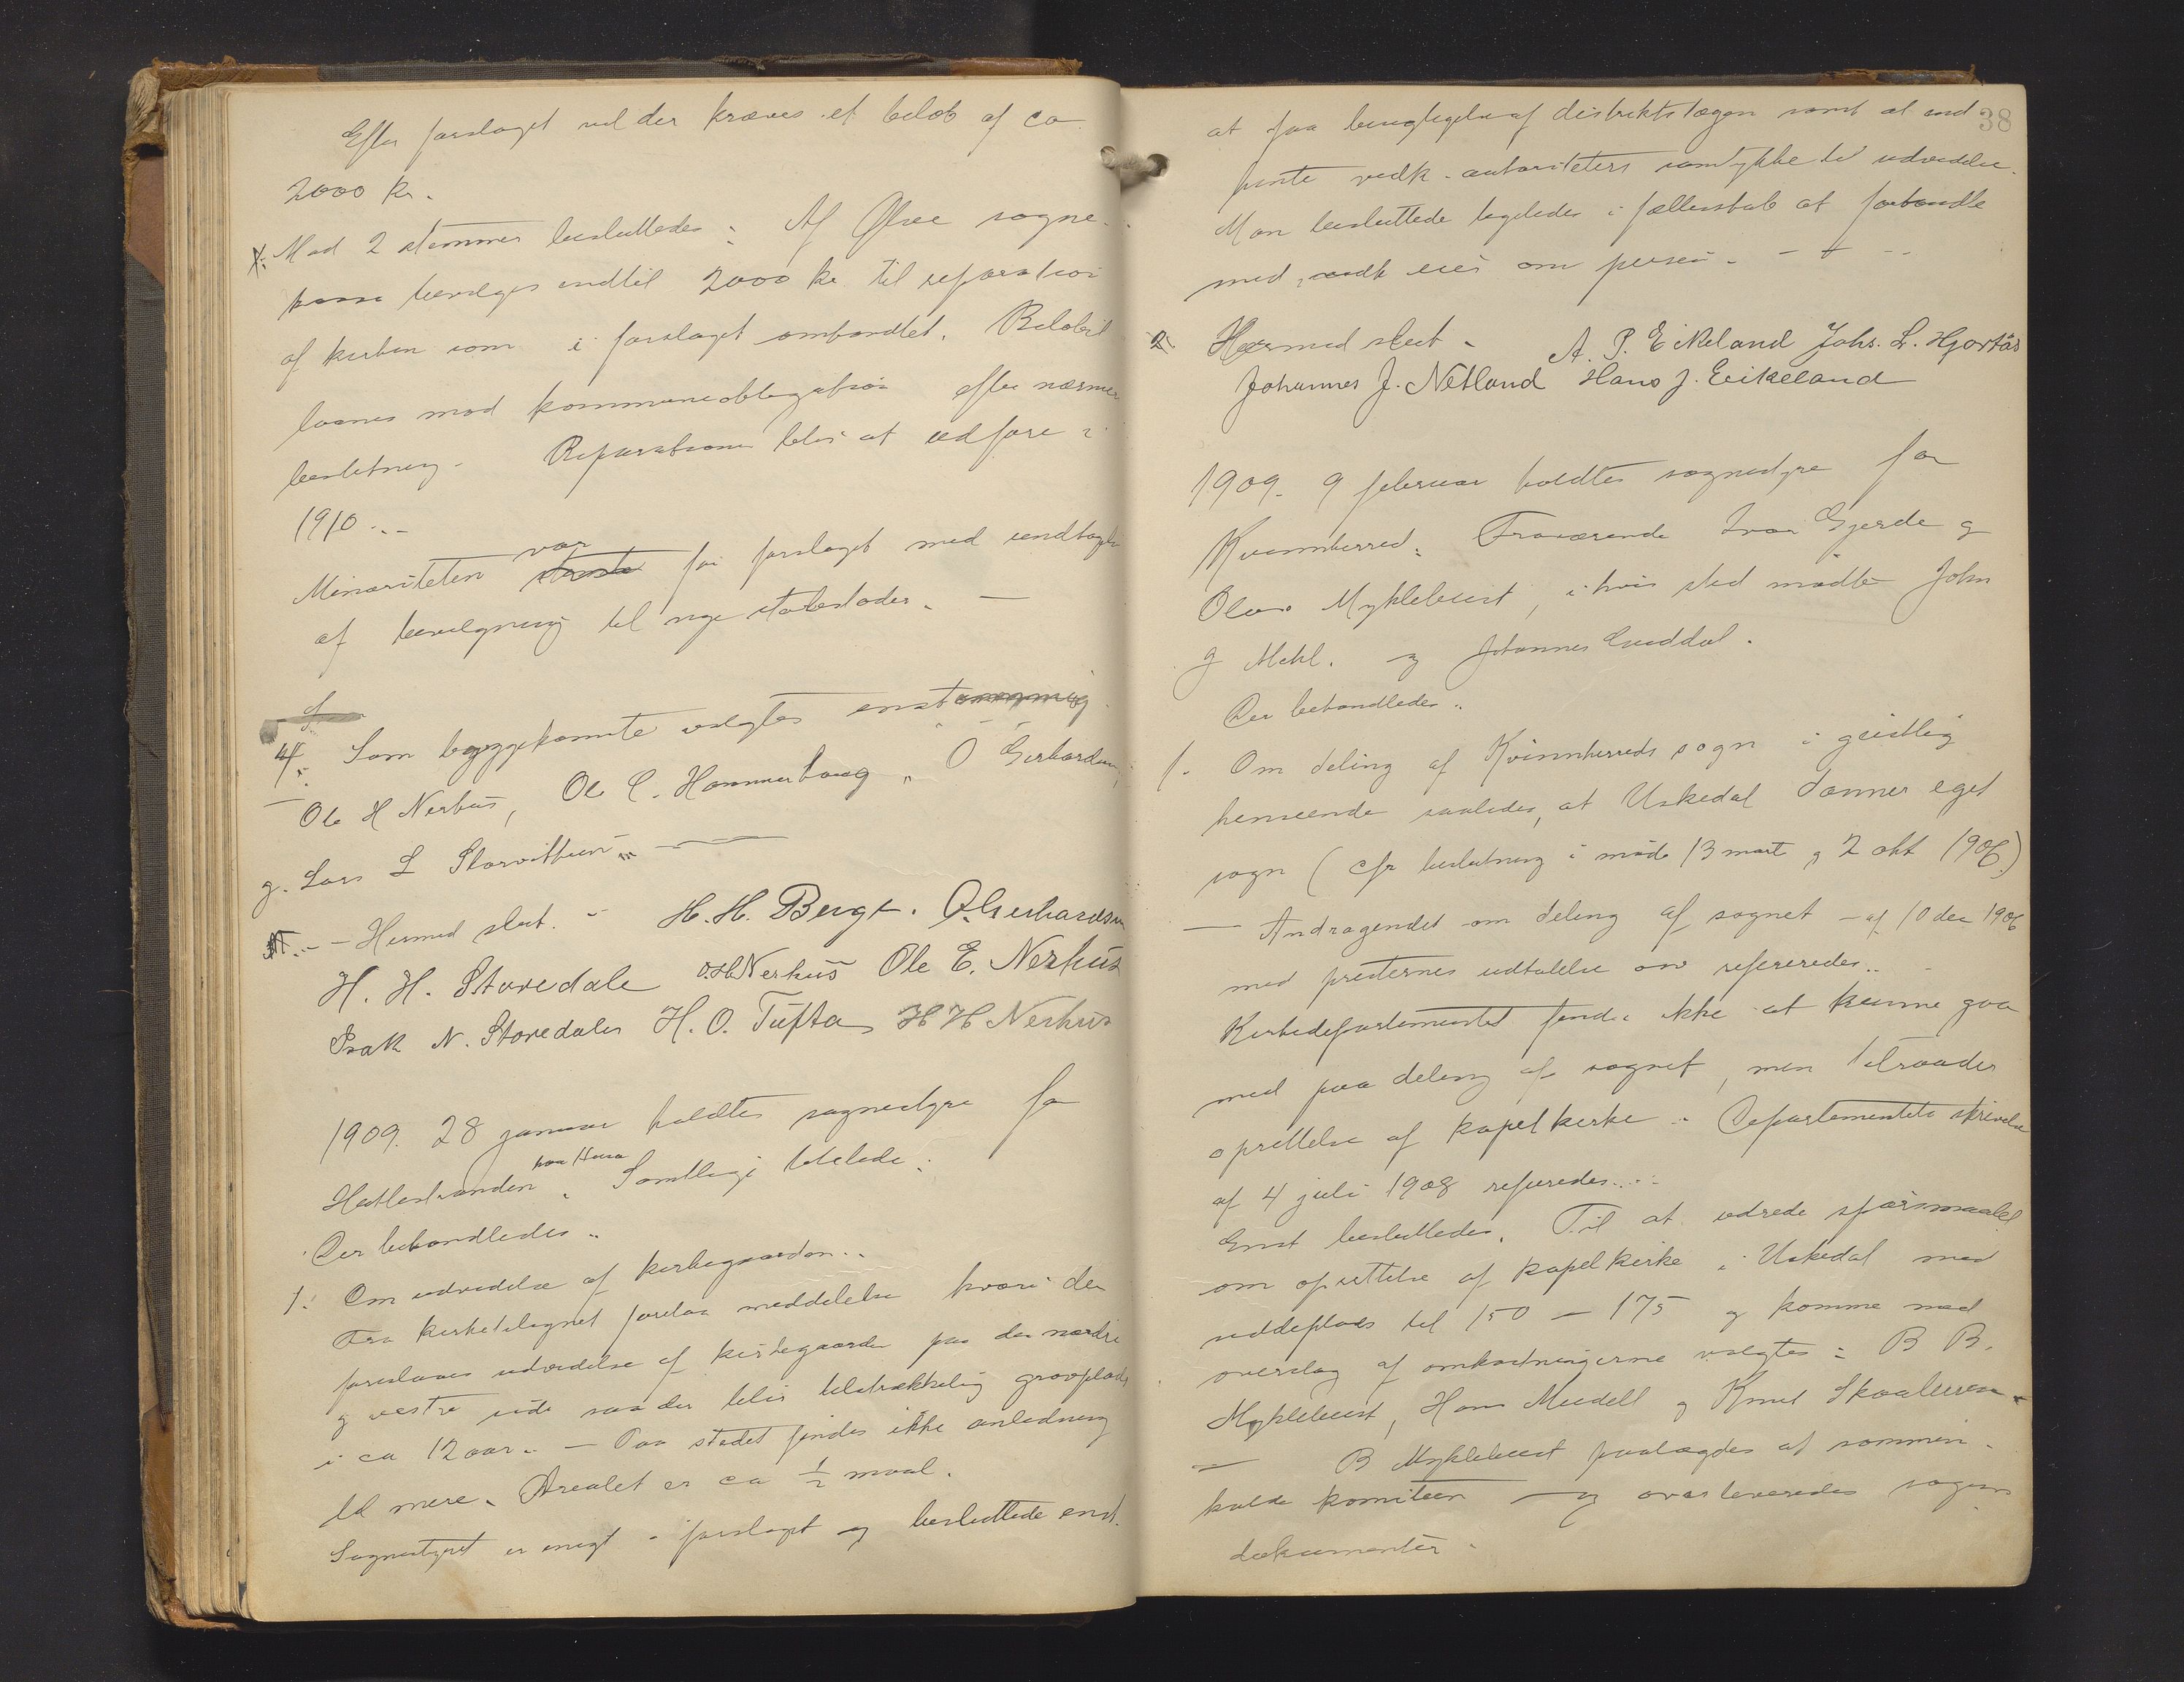 Efter forslaget vil der kræves et beløb af ca
2000 kr.
Mod 2 stemmer besluttedes: Af Ølve sogne-
kasse bevilges indtil 2000 kr til reparation
af kirken som i forslaget ombandlet. Beløbet
laanes mod kommuneobligation efter nærmere
beslutning. Reparationen blir at udføre i
1910.
Minoriteten var for forslaget med undtagelse
af bevilgning til nye stolestader. —
4. Som byggekomite valgtes enst
Ole H Nerhus, Ole C. Hammerhaug, O Gerhardsen,
g. Lars L Storvithun —
— Hermed slut. — H. H. Berge. O. Gerhardsen
H. H. Storedale O. H. Nerhus Ole E. Nerhus
Isak N. Storedale H. O. Tufta H H Nerhus
1909. 28 januar holdtes sognestyre for
Hatlestranden paa Husa. Samtlige tilstede.
Der behandledes:
1. Om udvidelse af kirkegaarden..
Fra kirketilsynet forelaa meddelelse hvori der
foreslaaes udvidelse af kirkegaarden paa den nordre
g vestre side saa der blir tilstrækkelig gravplads
i ca 12 aar. — Paa stedet findes ikke anledning
til mere. Arealet er ca ½ maal.
Sognestyret er enigt i forslaget og besluttede enst.
38
at faa besigtigelse af distriktslægen samt at ind
hente vedk. autoriteters samtykke til udvidelse.
Man besluttede ligeledes i fællesskab at forhandle
med vedk eier om prisen. — + —
2. Hermed slut. A. P. Eikeland Johs. L. Hjortås
Johannes J. Netland Hans J. Eikeland
1909. 9 februar holdtes sognestyre for
Kvinnherred. Fraværende Ivar Gjerde g
Olav Myklebust, i hvis sted mødte John
J Mehl. og Johannes Guddal.
Der behandledes:
1. Om deling af Kvinnherreds sogn i geistlig
henseende saaledes, at Uskedal danner eget
sogn (cfr beslutning i møde 13 mart g 2 okt 1906.)
— Andragendet om deling af sognet — af 10 dec 1906
med presternes udtalelse ov refereredes..
Kirkedepartementet finder ikke at kunne gaa
med paa deling af sognet, men tilraader
oprettelse af kapelkirke. Departementets skrivelse
af 4 juli 1908 refereredes....
Enst besluttedes. Til at udrede spørsmaalet
om oprettelse af kapelkirke i Uskedal med
siddeplads til 150 – 175 g komme med
overslag af omkostningerne valgtes: B B.
Myklebust, Hans Mudell g Knut Skaaluren.
— B Myklebust paalægdes at sammen-
kalde komiteen — og overleveredes sagens
dokumenter.